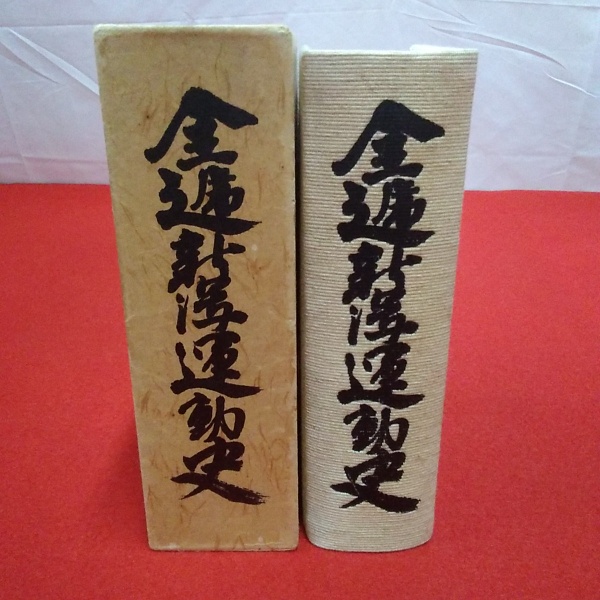 全逓新潟運動史
全逓新潟運動史